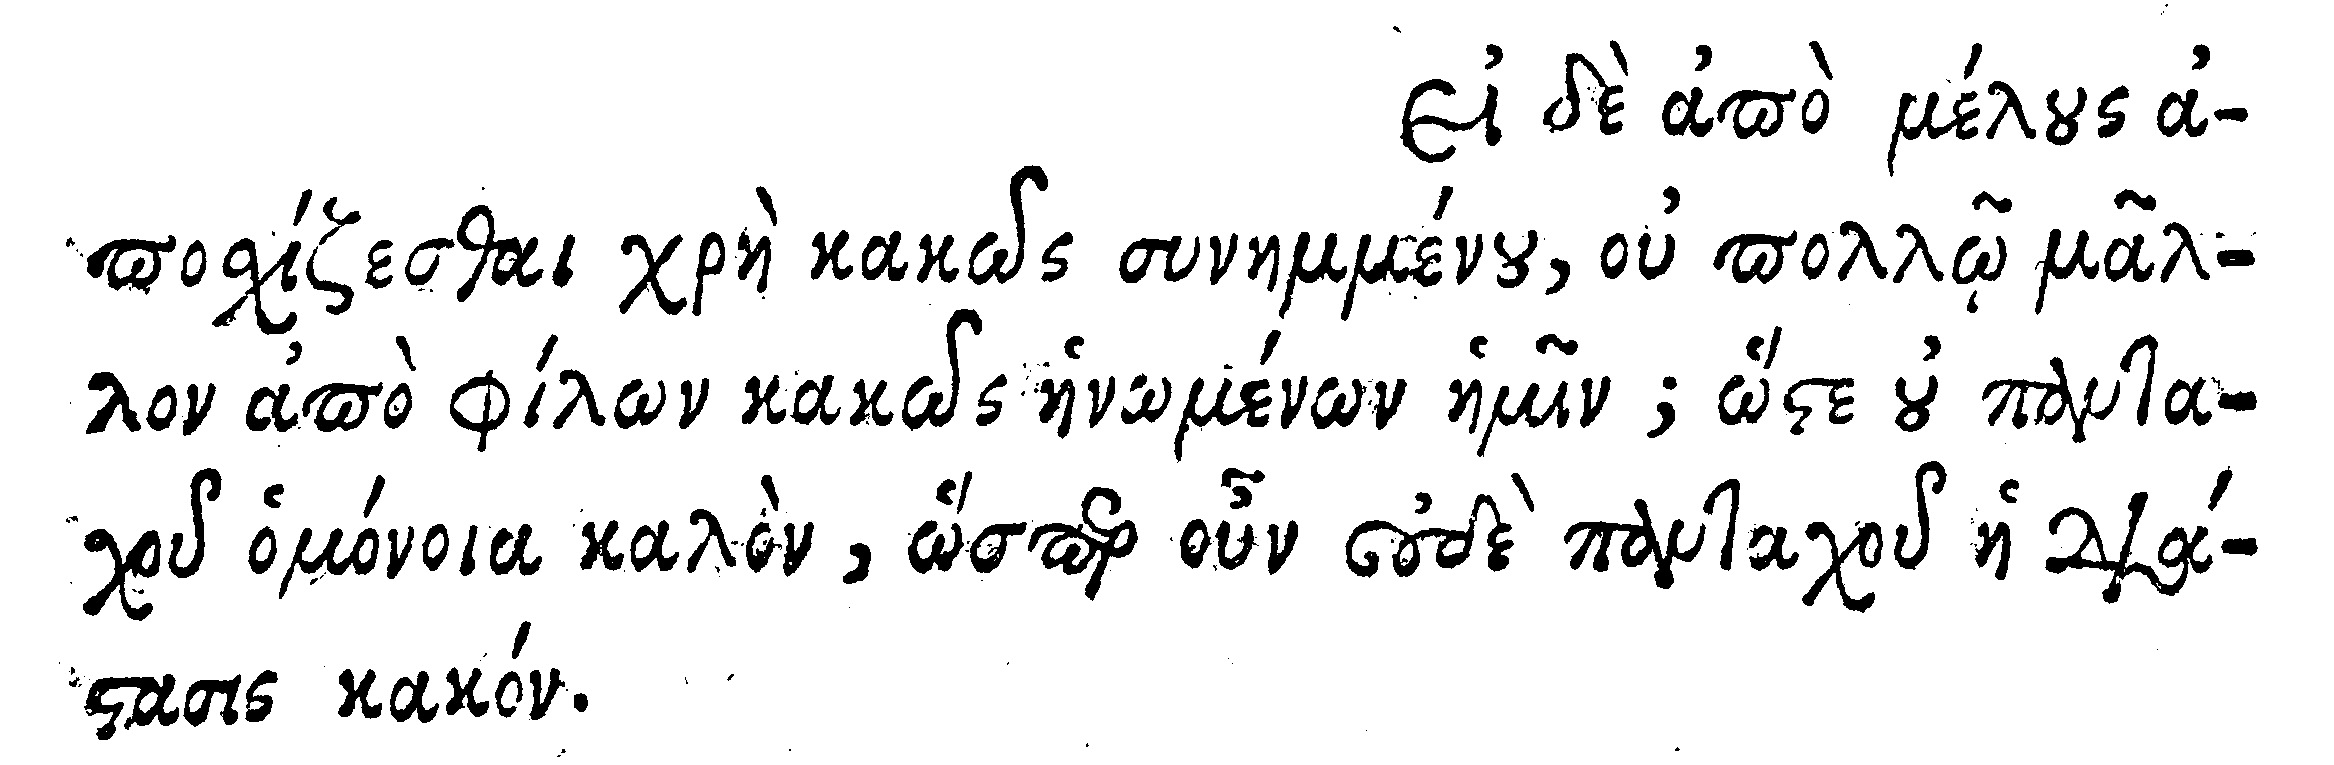 Εἰ δὲ ἀπὸ μέλους ἀ-
ποσχίζεσθαι χρὴ κακῶς συνημμένου, οὐ πολλῷ μᾶλ-
λον ἀπὸ φίλων κακῶς ἡνωμένων ἡμῖν; ὥστε οὐ πανλα-
χοῦ ὁμόνοια καλὸν, ὥσπερ οὖν οὐδὲ πανταχοῦ ἡ διά-
στασις κακόν.